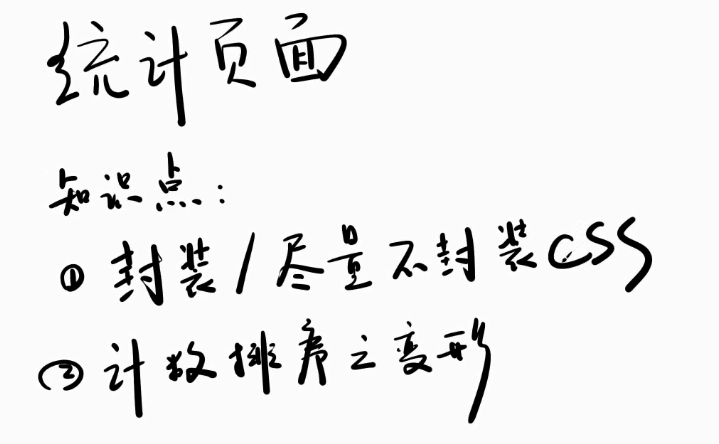 统计页面
知识点:
① 封装/尽量不封装CSS
② 计数排序之变形